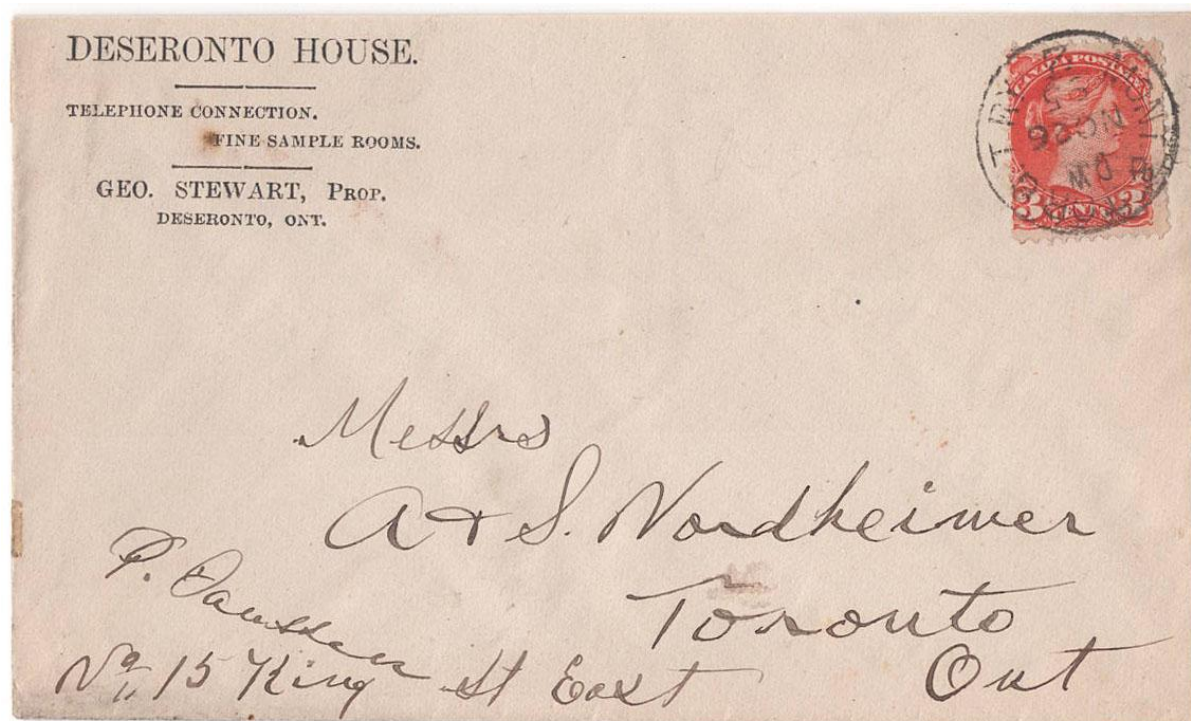 DESERONTO HOUSE.
TELEPHONE CONNECTION.
FINE SAMPLE ROOMS.
GEO. STEWART, PROP.
DESERONTO, ONT.
CANADA POSTAGE
3 CENTS 3
MONT
NO 26
Messrs
A & S. Nordheimer
Toronto
Ont
P.
No 15 King St East